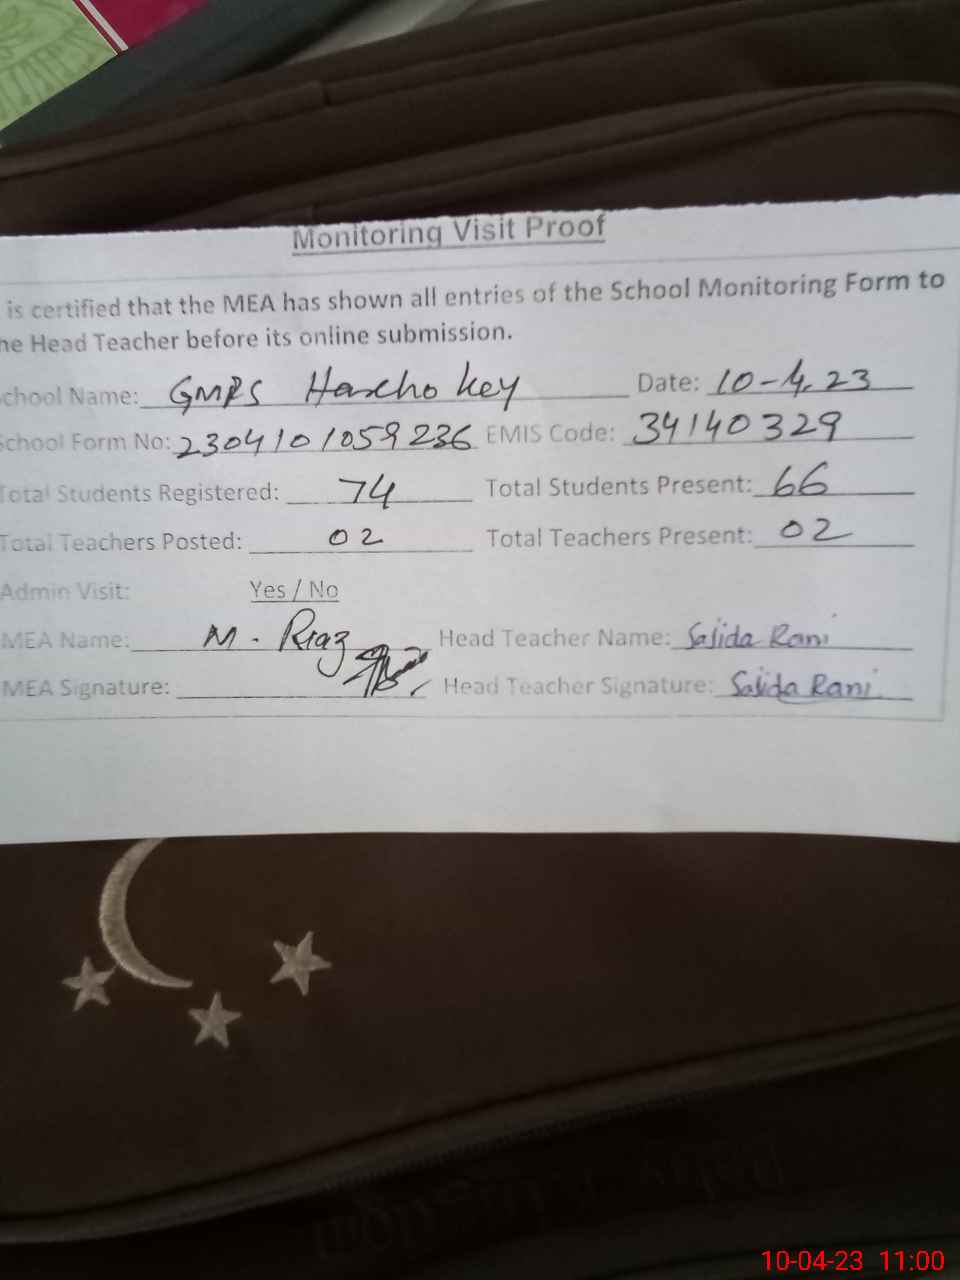 Monitoring Visit Proof
is certified that the MEA has shown all entries of the School Monitoring Form to
he Head Teacher before its online submission.
chool Name: GMPS Harcho key Date: 10-4-23
School Form No: 2304101059236 EMIS Code: 34140329
Total Students Registered: 74 Total Students Present: 66
Total Teachers Posted: 02 Total Teachers Present: 02
Admin Visit: Yes / No
MEA Name: M. Riaz Head Teacher Name: Sajida Rani
MEA Signature: Head Teacher Signature: Sajida Rani
10-04-23 11:00